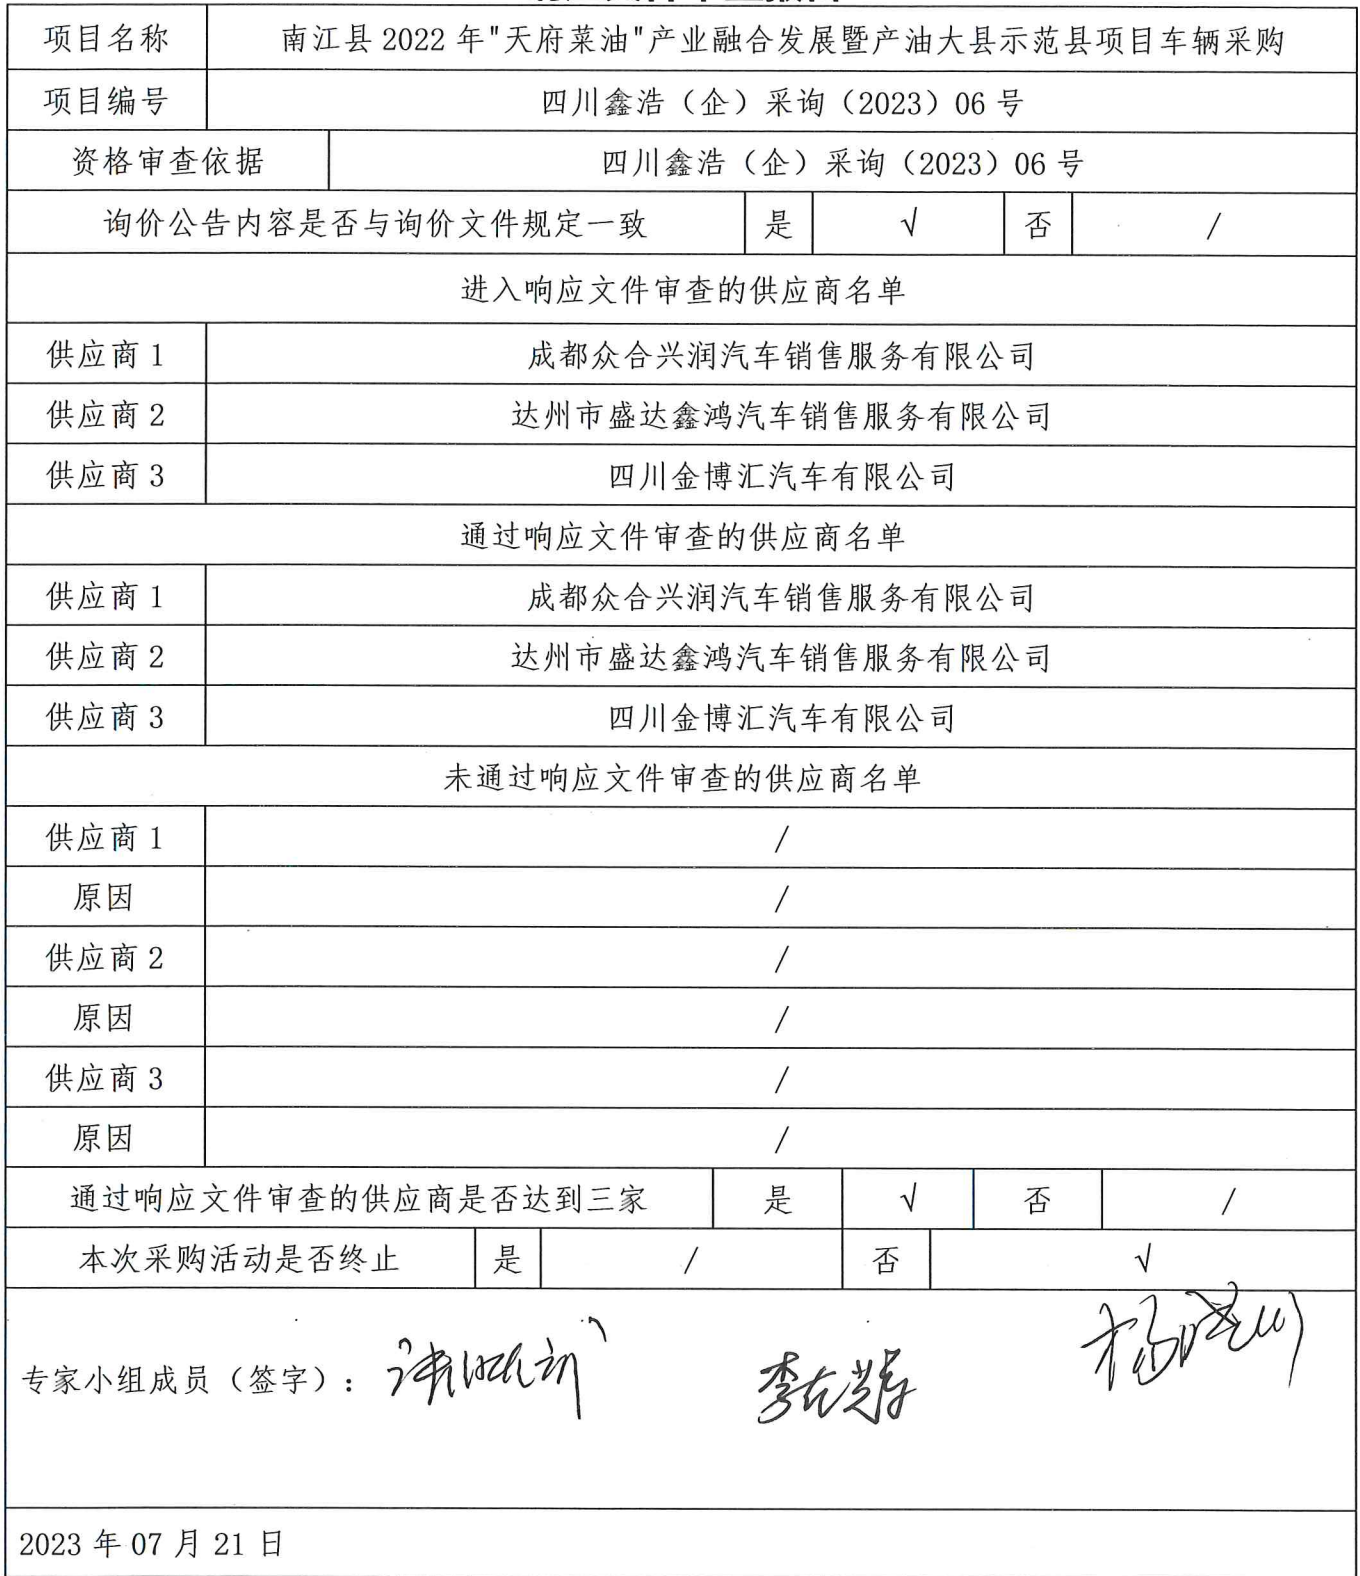 项目名称 南江县 2022 年"天府菜油"产业融合发展暨产油大县示范县项目车辆采购
项目编号 四川鑫浩（企）采询（2023）06 号
资格审查依据 四川鑫浩（企）采询（2023）06 号
询价公告内容是否与询价文件规定一致 是 √ 否 /
进入响应文件审查的供应商名单
供应商 1 成都众合兴润汽车销售服务有限公司
供应商 2 达州市盛达鑫鸿汽车销售服务有限公司
供应商 3 四川金博汇汽车有限公司
通过响应文件审查的供应商名单
供应商 1 成都众合兴润汽车销售服务有限公司
供应商 2 达州市盛达鑫鸿汽车销售服务有限公司
供应商 3 四川金博汇汽车有限公司
未通过响应文件审查的供应商名单
供应商 1 /
原因 /
供应商 2 /
原因 /
供应商 3 /
原因 /
通过响应文件审查的供应商是否达到三家 是 √ 否 /
本次采购活动是否终止 是 / 否 √
专家小组成员（签字）：
2023 年 07 月 21 日